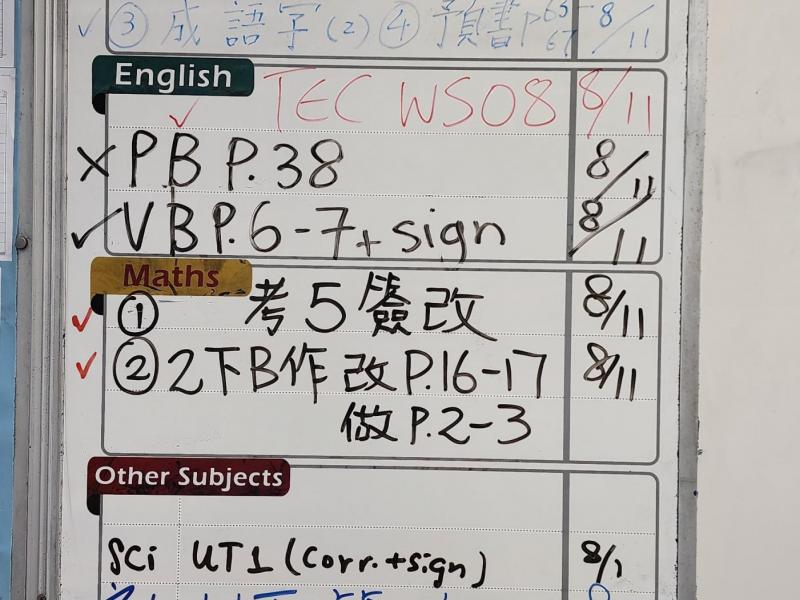 ③ 成語字(2) ④ 預書P65-67 8/11
English
TEC WS08 8/11
PB P.38 8/11
VB P.6-7 + sign 8/11
Maths
① 考5簽改 8/11
② 2下B作 改P.16-17 8/11
做P.2-3
Other Subjects
Sci UT1 (Corr.+sign) 8/1